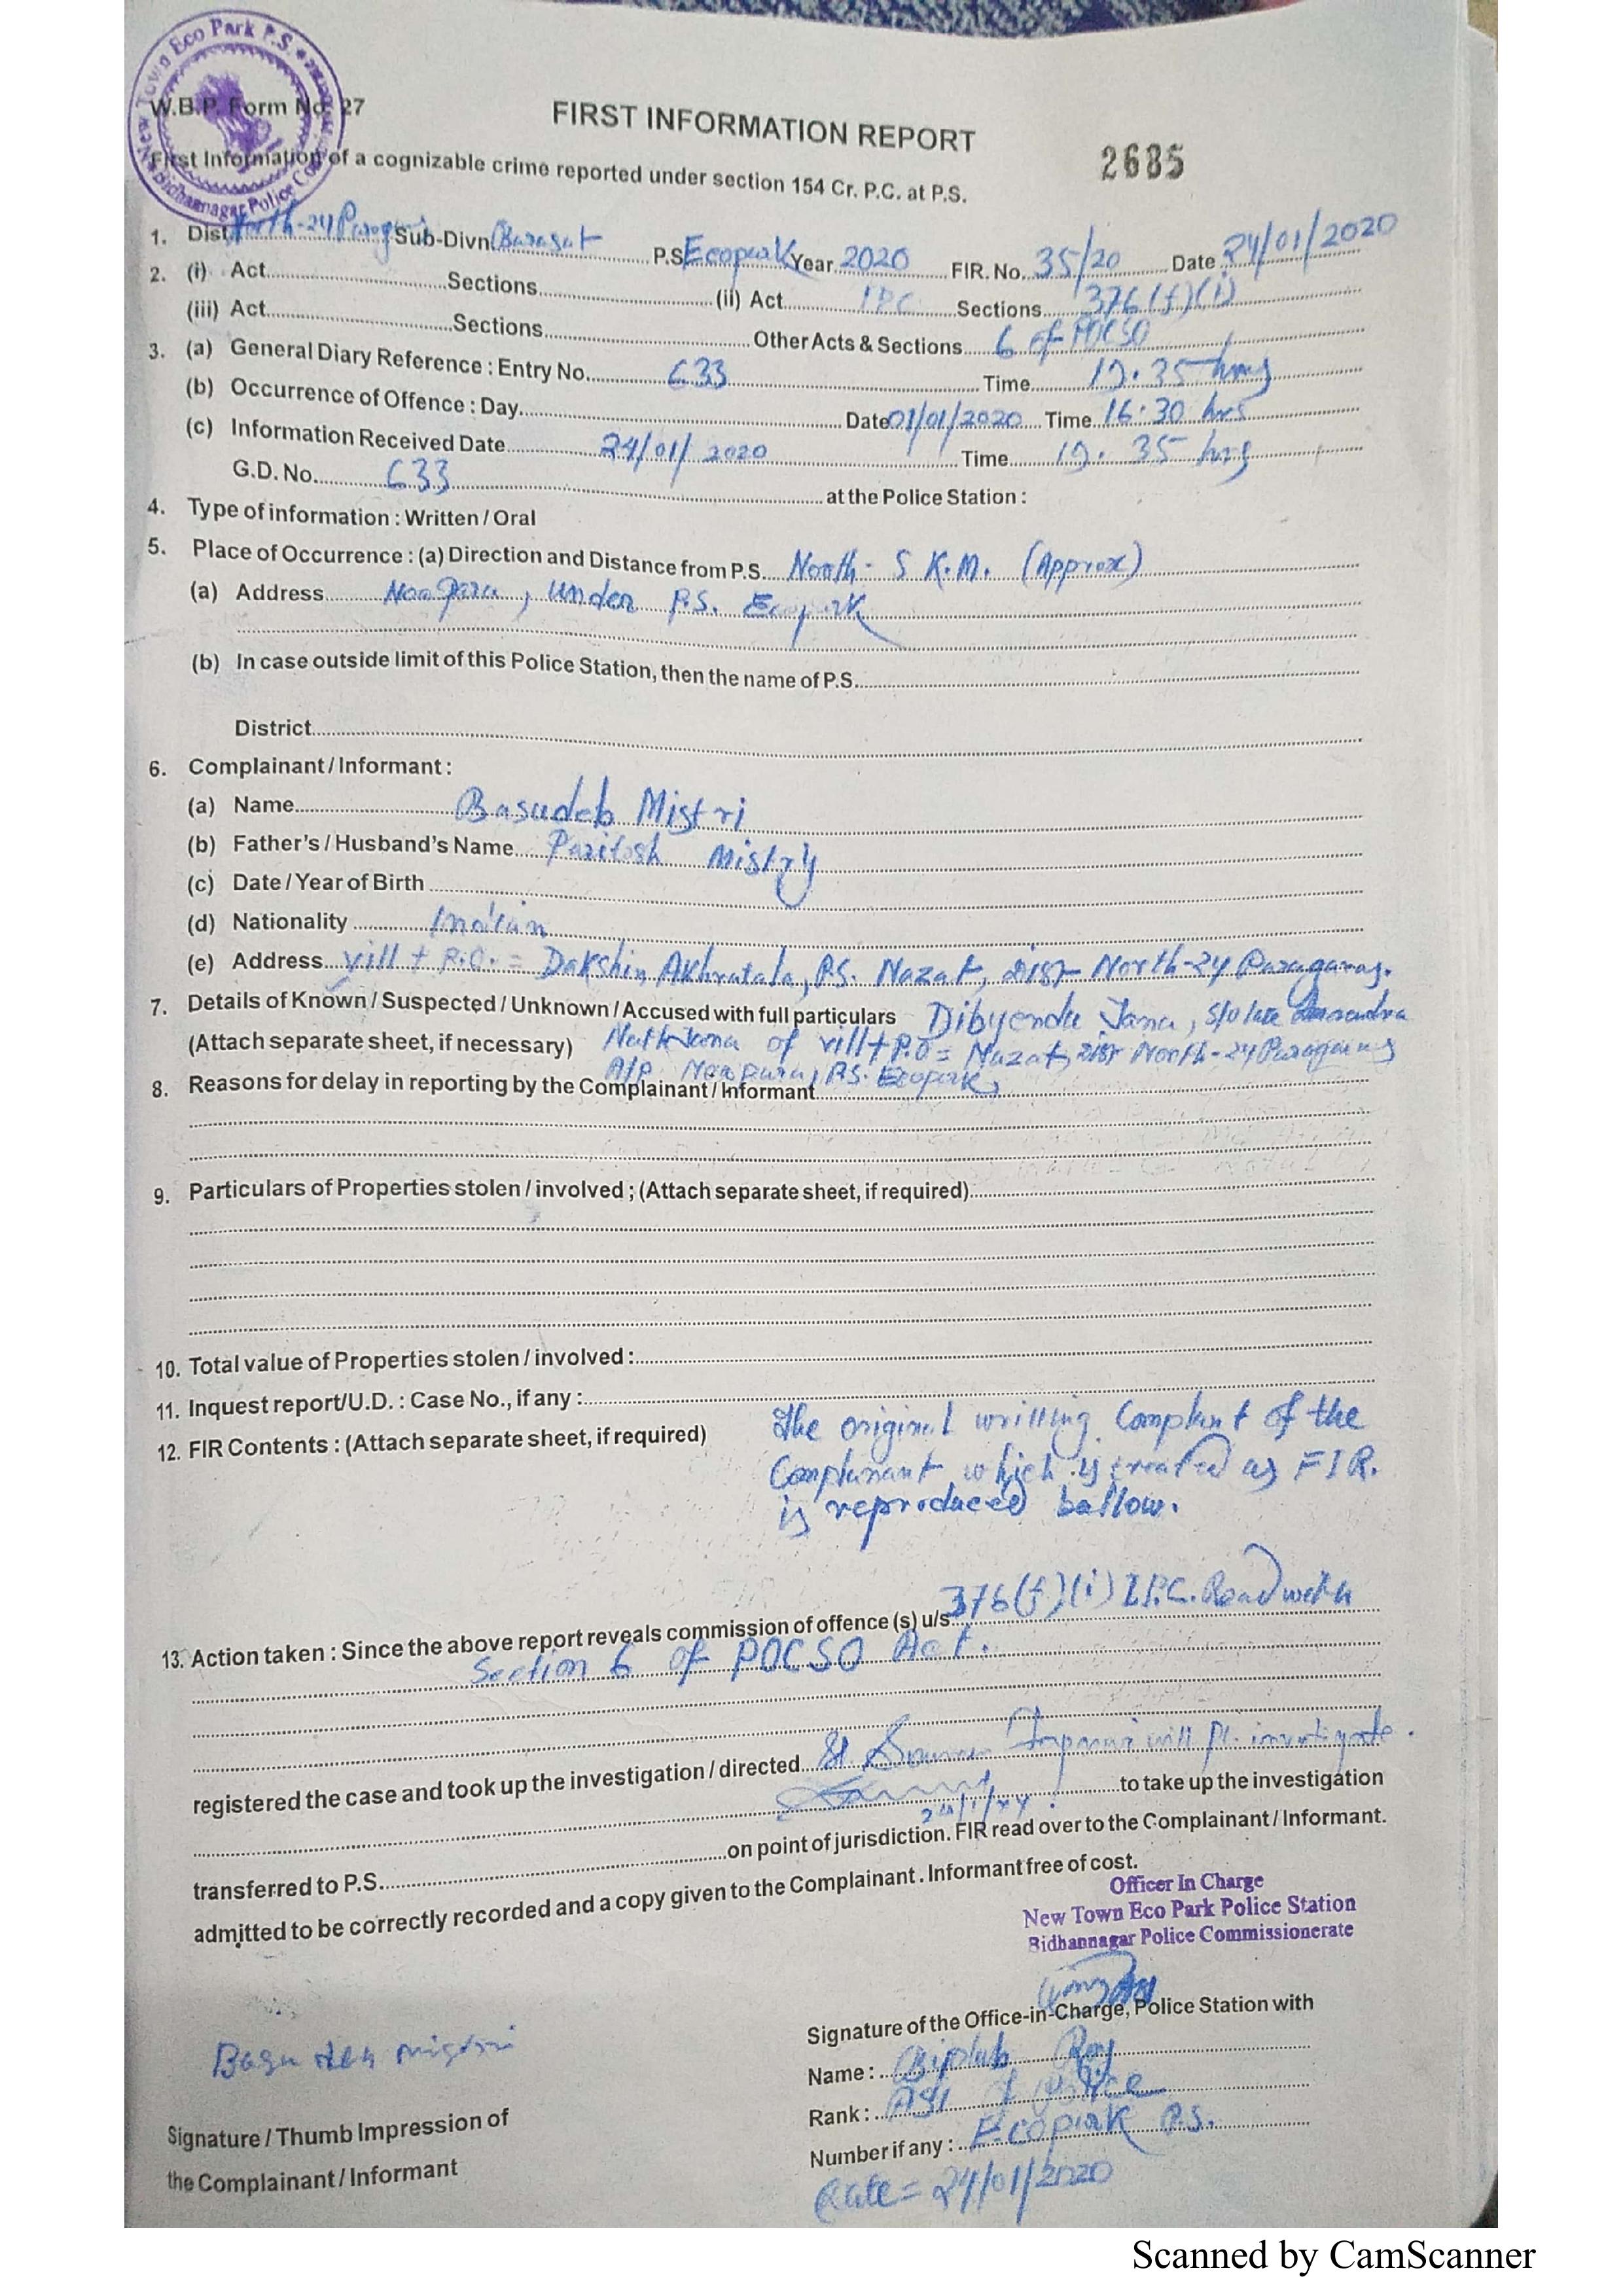 New Town Eco Park P.S. Bidhannagar Police
W.B.P. Form No. 27
FIRST INFORMATION REPORT
2685
First Information of a cognizable crime reported under section 154 Cr. P.C. at P.S.
1. Dist. North-24 Parganas Sub-Divn. Barasat P.S. Ecopark Year 2020 FIR. No. 35/20 Date 24/01/2020
2. (i) Act Sections (ii) Act IPC Sections 376(f)(i)
(iii) Act Sections Other Acts & Sections 6 of POCSO
3. (a) General Diary Reference : Entry No. 633 Time 19.35 hrs
(b) Occurrence of Offence : Day Date 01/01/2020 Time 16:30 hrs
(c) Information Received Date 24/01/2020 Time 19.35 hrs
G.D. No. 633 at the Police Station :
4. Type of information : Written / Oral
5. Place of Occurrence : (a) Direction and Distance from P.S. North - 5 K.M. (Approx)
(a) Address Noapara, under P.S. Ecopark
(b) In case outside limit of this Police Station, then the name of P.S.
District
6. Complainant / Informant :
(a) Name Basudeb Mistri
(b) Father's / Husband's Name Paritosh Mistry
(c) Date / Year of Birth
(d) Nationality Indian
(e) Address vill + P.O. = Dakshin Akhratala, P.S. Nazat, Dist North-24 Parganas.
7. Details of Known / Suspected / Unknown / Accused with full particulars Dibyendu Jana, S/o late
(Attach separate sheet, if necessary) Nath Jana of vill + P.O = Nazat, Dist North-24 Parganas
A/P Noapara, P.S. Ecopark,
8. Reasons for delay in reporting by the Complainant / Informant
9. Particulars of Properties stolen / involved ; (Attach separate sheet, if required)
10. Total value of Properties stolen / involved :
11. Inquest report/U.D. : Case No., if any :
12. FIR Contents : (Attach separate sheet, if required) The original writting Complant of the
Complanant which is treated as FIR.
is reproduced bellow.
13. Action taken : Since the above report reveals commission of offence (s) u/s 376(f)(i) I.P.C. Read with
Section 6 of POCSO Act.
registered the case and took up the investigation / directed SI will Pl. investigate.
to take up the investigation
transferred to P.S. on point of jurisdiction. FIR read over to the Complainant / Informant.
admitted to be correctly recorded and a copy given to the Complainant . Informant free of cost.
Officer In Charge
New Town Eco Park Police Station
Bidhannagar Police Commissionerate
Signature of the Office-in-Charge, Police Station with
Name : Biplab Roy
Rank : ASI of police
Number if any : Ecopark P.S.
Date = 24/01/2020
Basudeb Mistri
Signature / Thumb Impression of
the Complainant / Informant
Scanned by CamScanner